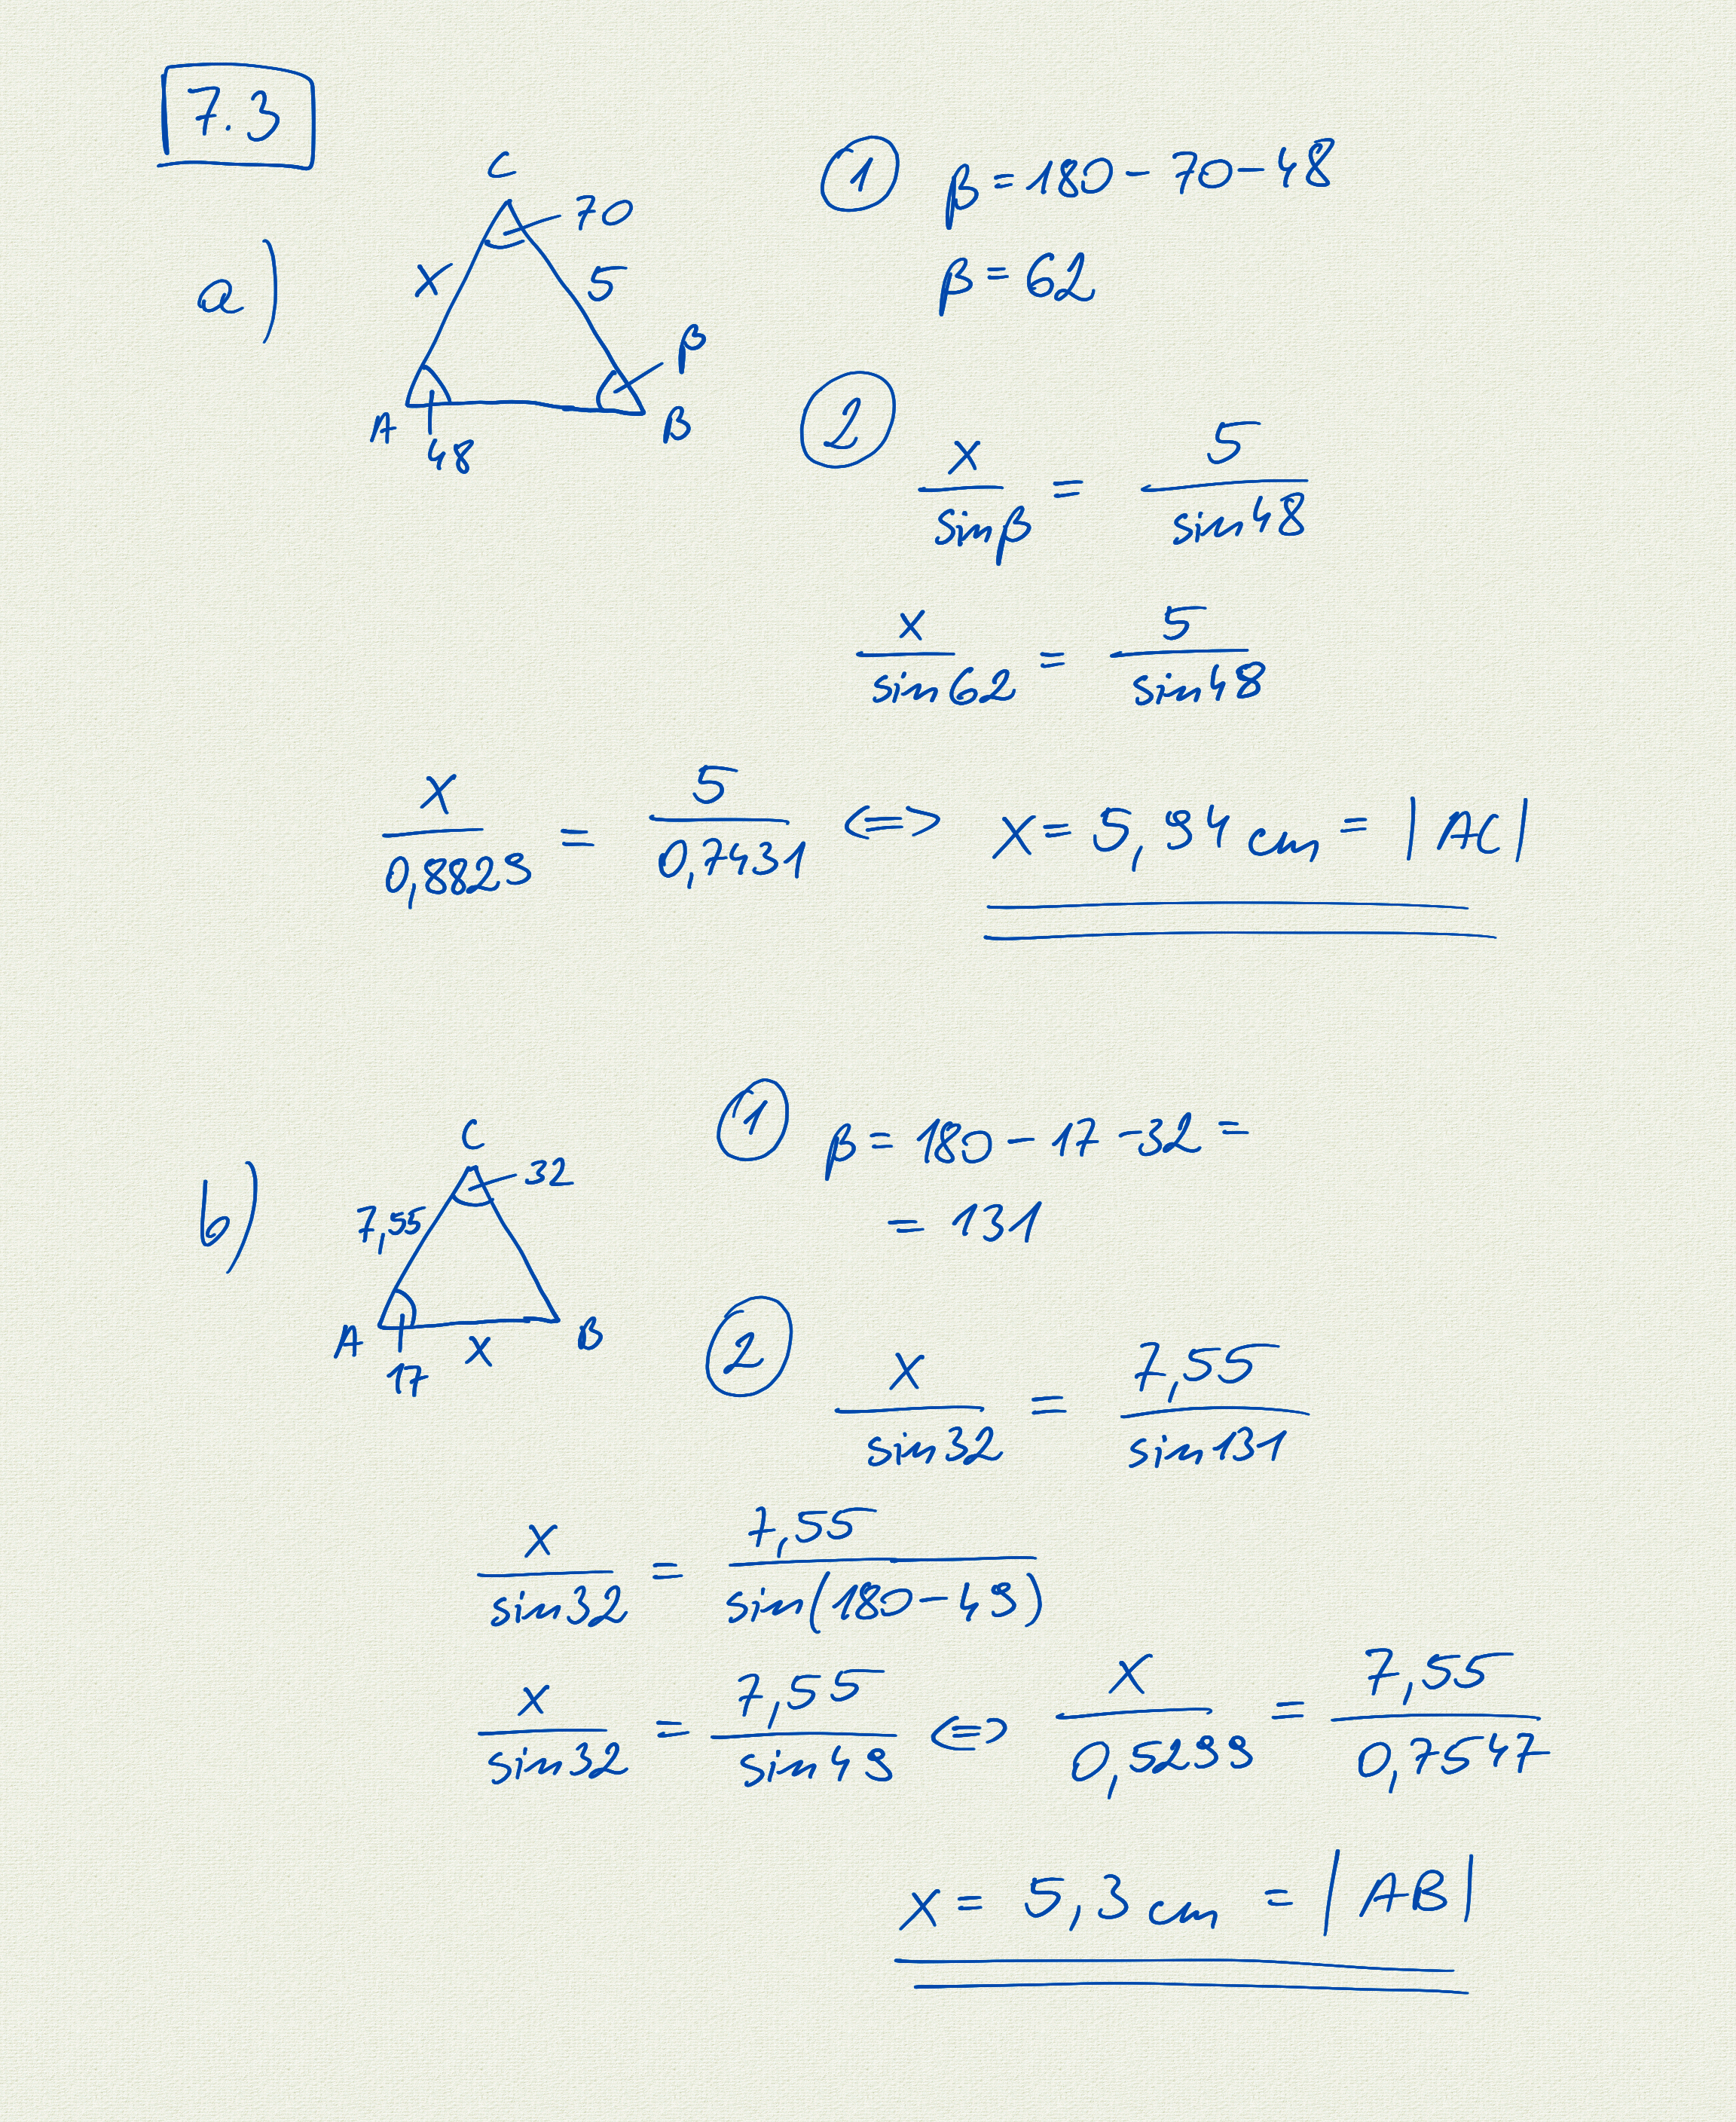 7.3
a)
C
70
x
5
β
A
48
B
① β = 180 - 70 - 48
β = 62
② x/sinβ = 5/sin48
x/sin62 = 5/sin48
x/0,8829 = 5/0,7431 <=> x = 5,94 cm = |AC|
b)
C
32
7,55
A
17
x
B
① β = 180 - 17 - 32 =
= 131
② x/sin32 = 7,55/sin131
x/sin32 = 7,55/sin(180-49)
x/sin32 = 7,55/sin49 <=> x/0,5299 = 7,55/0,7547
x = 5,3 cm = |AB|